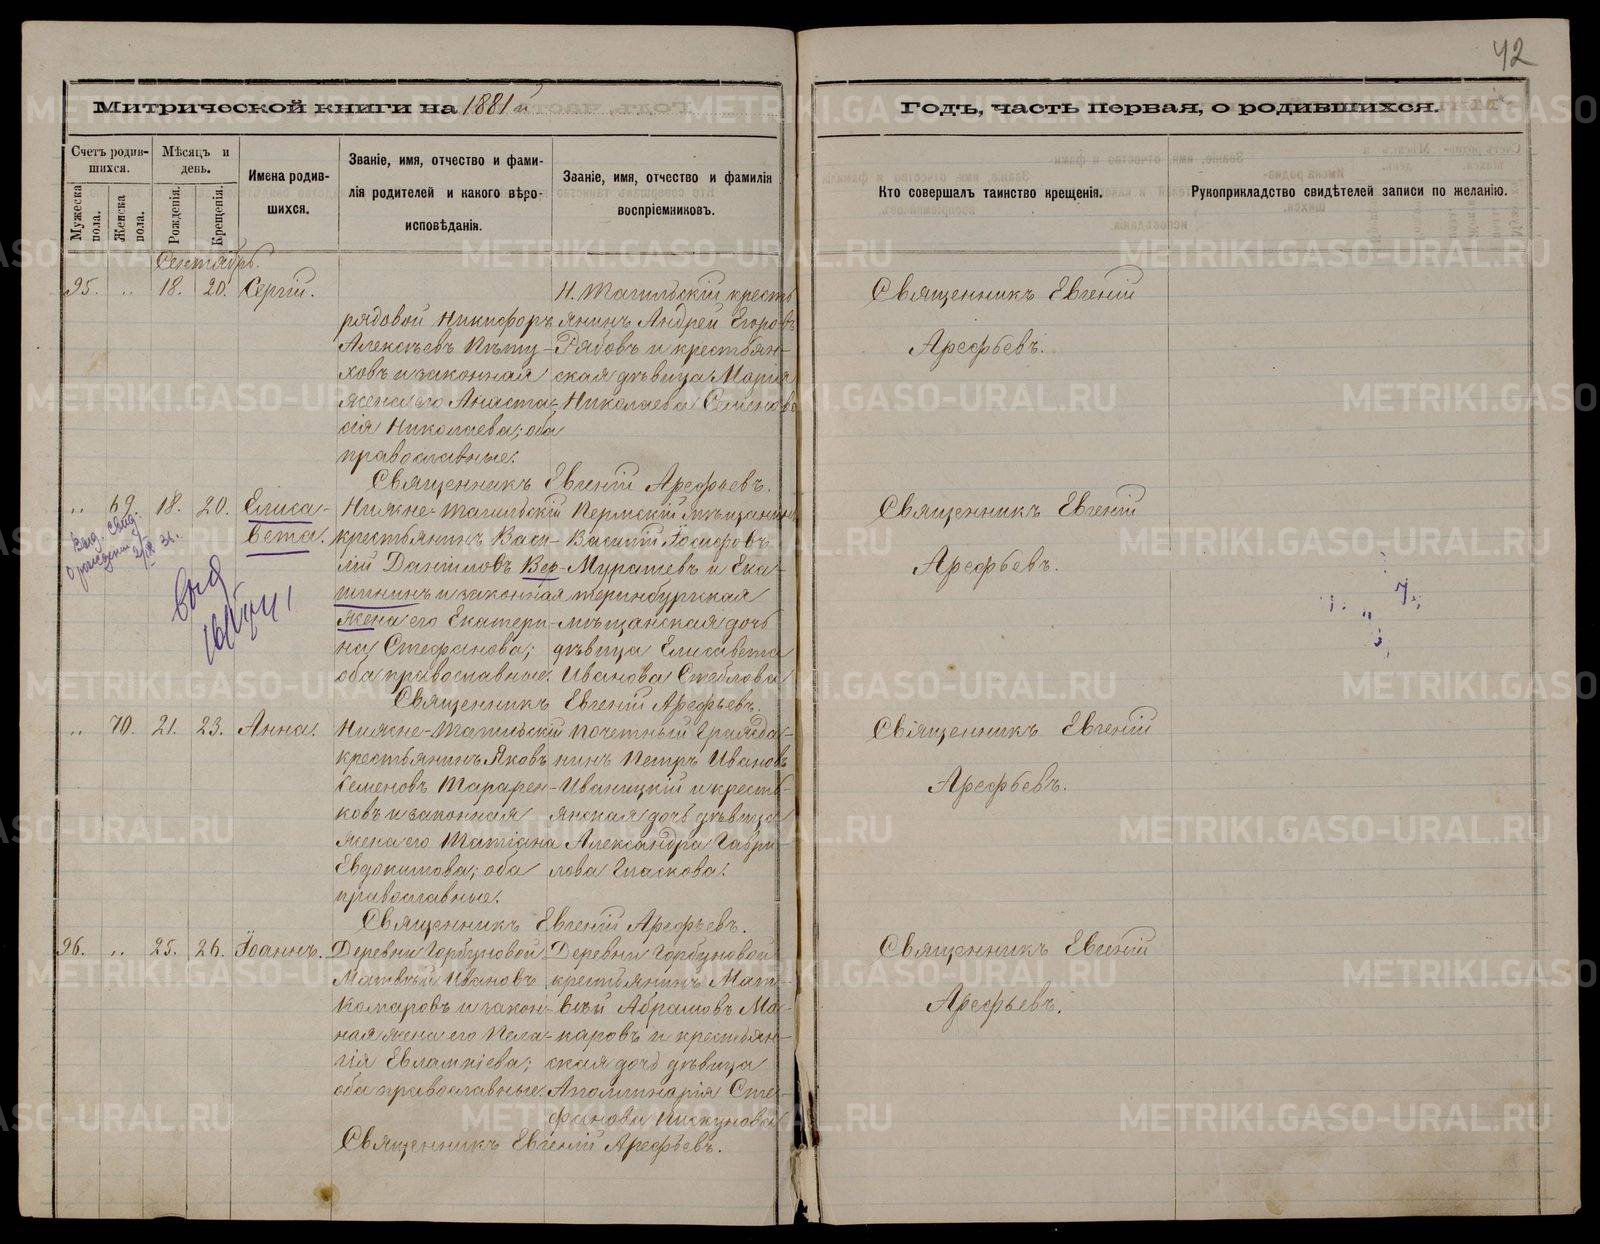 42
Митрической книги на 1881й
Годъ, часть первая, о родившихся.
Счетъ родив-
шихся.
Мужеска
пола.
Женска
пола.
Мѣсяцъ и
день.
Рожденія.
Крещенія.
Имена родив-
шихся.
Званіе, имя, отчество и фами-
лія родителей и какого вѣро-
исповѣданія.
Званіе, имя, отчество и фамилія
воспріемниковъ.
Кто совершалъ таинство крещенія.
Рукоприкладство свидѣтелей записи по желанію.
Сентябрь.
95. „ 18. 20. Сергій.
рядовой Никифоръ
Алексѣевъ Пѣту-
ховъ и законная
жена его Анаста-
сія Николаева; оба
православные.
Н. Тагильскій кресть
янинъ Андрей Егоровъ
Рябовъ и крестьян-
ская дѣвица Марія
Николаева Семенова
Священникъ Евгеній
Арефьевъ.
Священникъ Евгеній Арефьевъ.
„ 69. 18. 20. Елиса-
вета.
Выд. свид.
о рождении
Нижне-Тагильскій
крестьянинъ Васи-
лій Даниловъ Вер-
шининъ и законная
жена его Екатери-
на Стефанова;
оба православные.
Пермскій мѣщанинъ
Василій Іосифовъ
Мурашевъ и Ека-
теринбургская
мѣщанская дочь
дѣвица Елисавета
Иванова Стеблова
Священникъ Евгеній
Арефьевъ.
Священникъ Евгеній Арефьевъ.
„ 70. 21. 23. Анна.
Нижне-Тагильскій
крестьянинъ Яковъ
Семеновъ Тарарен-
ковъ и законная
жена его Татіана
Евдокимова; оба
православные.
Почетный Гражда-
нинъ Петръ Ивановъ
Иваницкій и кресть-
янская дочь дѣвица
Александра Гаври-
лова Гласкова.
Священникъ Евгеній
Арефьевъ.
Священникъ Евгеній Арефьевъ.
96. „ 25. 26. Іоаннъ.
Деревни Горбуновой
Матвѣй Ивановъ
Комаровъ и закон-
ная жена его Пела-
гія Евлампіева;
оба православные.
Деревни Горбуновой
крестьянинъ Мат-
вѣй Абрамовъ Ма-
каровъ и крестьян-
ская дочь дѣвица
Аполлинарія Сте-
фанова Пискунова
Священникъ Евгеній
Арефьевъ.
Священникъ Евгеній Арефьевъ.
METRIKI.GASO-URAL.RU